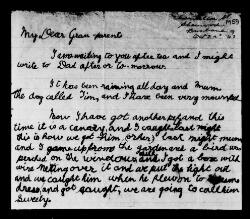 My Dear Gran parent
I am waiting to you after tea and I might
write to Dad after or to-morrow.
It has been raining all day and Mum
the day called Tim, and I have been very
Now I have got another pet and this
time it is a canary, and I caught last night
this is how we got him. (other) last night mum
and I came up from the garden and a bird was
perched on the window and I got a box with
wire netting over it and we put the light out
and we caught him when he flew on to mums
dress, and got caught, we are going to call him